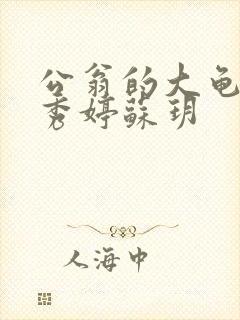 公翁的大龟
秀婷蘇玥
人海中